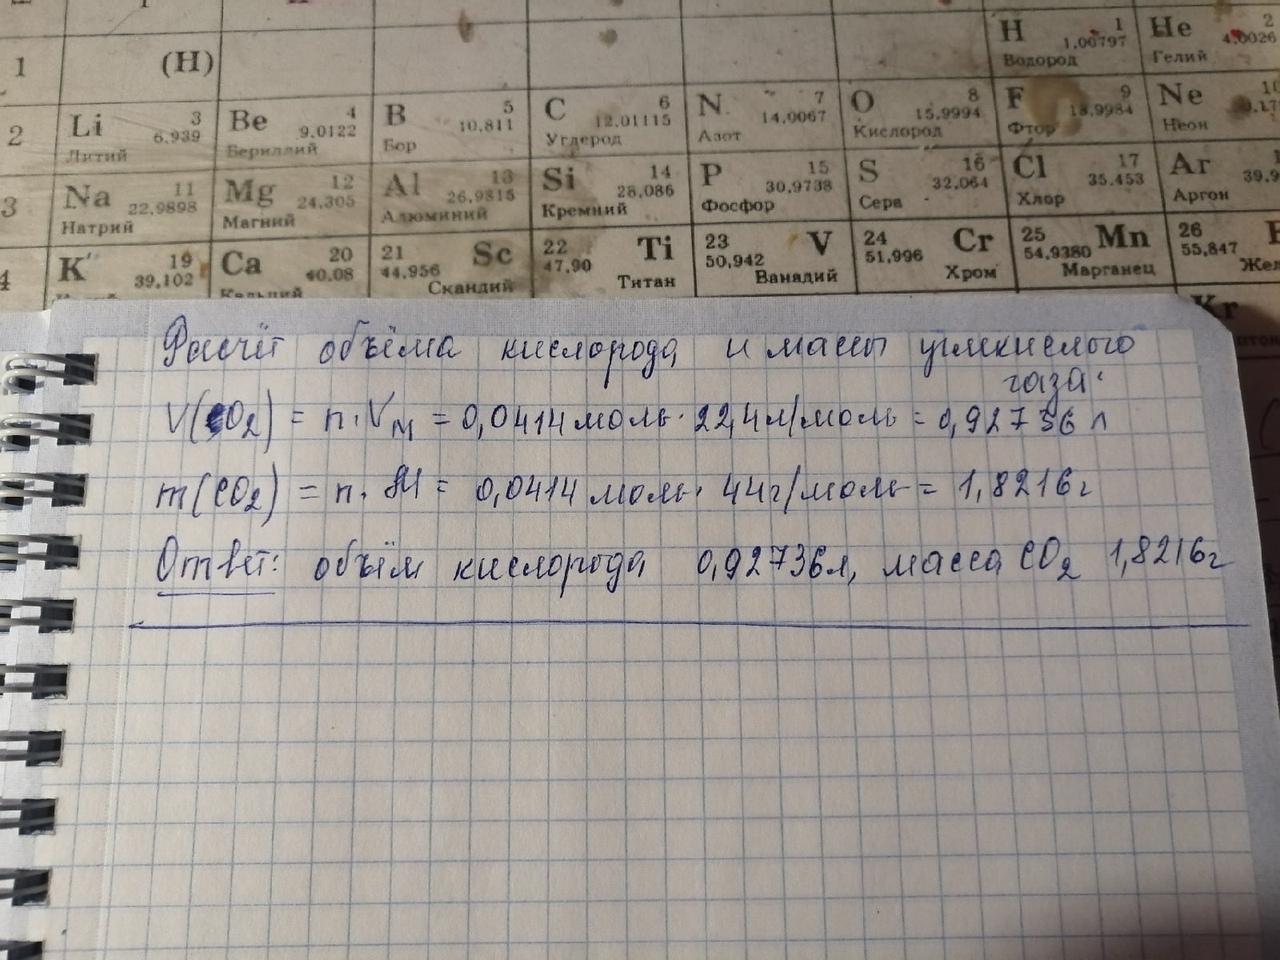 H 1 He 2
1 (H) 1,00797 4,0026
Водород Гелий
2 Li 3 Be 4 B 5 C 6 N 7 O 8 F 9 Ne
6,939 9,0122 10,811 12,01115 14,0067 15,9994 18,9984
Литий Бериллий Бор Углерод Азот Кислород Фтор Неон
3 Na 11 Mg 12 Al 13 Si 14 P 15 S 16 Cl 17 Ar
22,9898 24,305 26,9815 28,086 30,9738 32,064 35,453 39,9
Натрий Магний Алюминий Кремний Фосфор Сера Хлор Аргон
4 K 19 Ca 20 21 Sc 22 Ti 23 V 24 Cr 25 Mn 26
39,102 40,08 44,956 47,90 50,942 51,996 54,9380 55,847
Кальций Скандий Титан Ванадий Хром Марганец Жел
Kr
Расчёт объёма кислорода и массы углекислого
газа:
V(O₂) = n·Vм = 0,0414 моль · 22,4 л/моль = 0,92736 л
m(CO₂) = n · M = 0,0414 моль · 44 г/моль = 1,8216 г
Ответ: объём кислорода 0,92736 л, масса CO₂ 1,8216 г